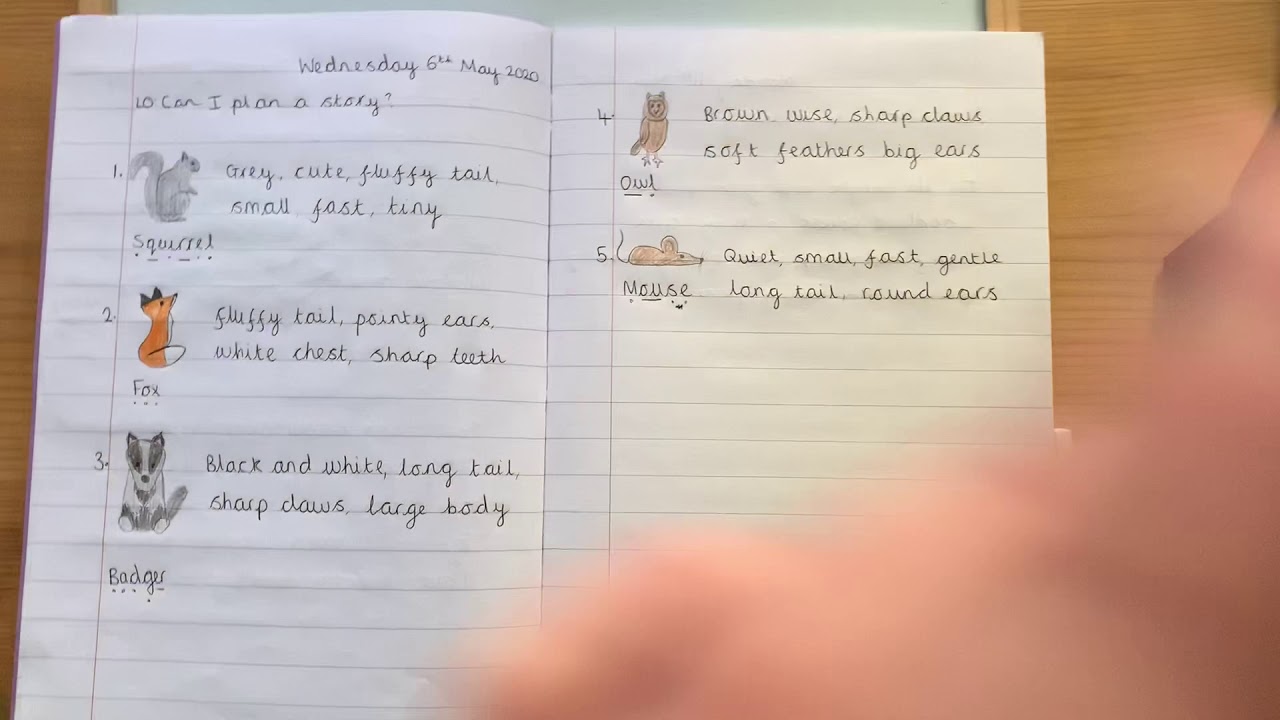 Wednesday 6th May 2020
LO Can I plan a story?
1. Grey, cute, fluffy tail,
small, fast, tiny
Squirrel
2. fluffy tail, pointy ears,
white chest, sharp teeth
Fox
3. Black and white, long tail,
sharp claws, large body
Badger
4. Brown, wise, sharp claws
soft feathers big ears
Owl
5. Quiet, small, fast, gentle
Mouse long tail, round ears